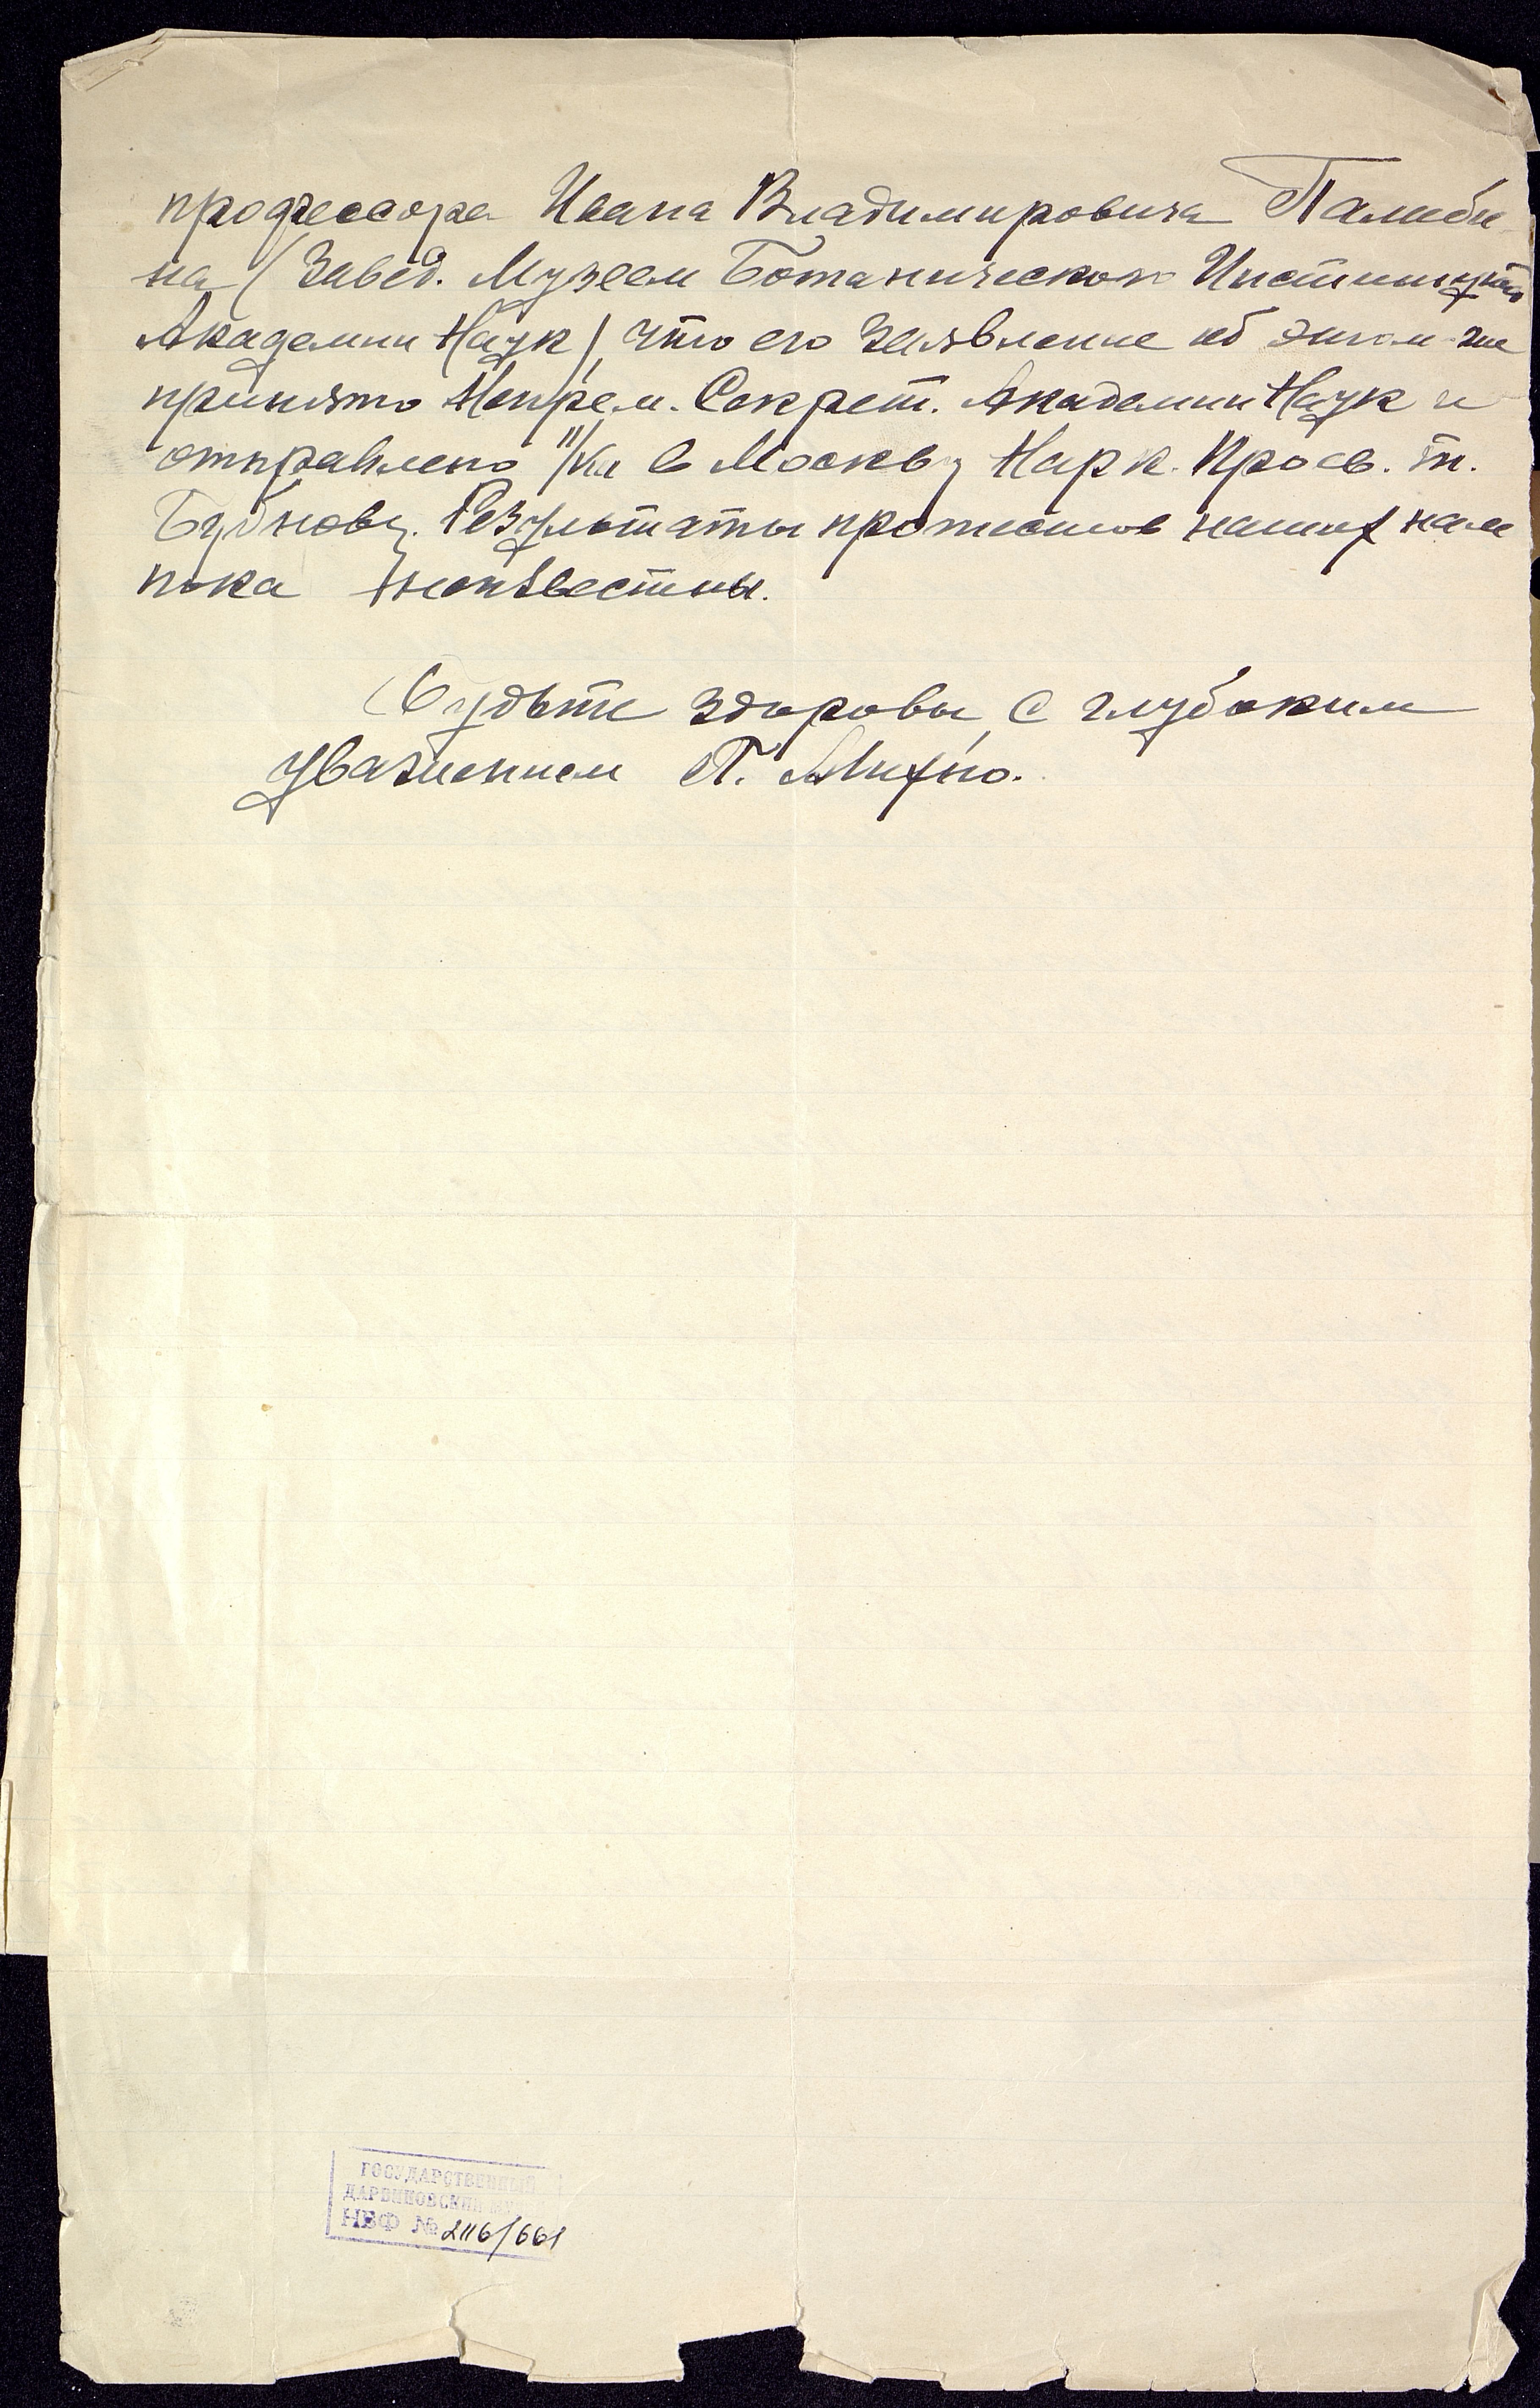 профессора Ивана Владимировича Палиби-
на (Завед. Музеем Ботанического Института
Академии Наук), что его заявление об этом же
принято Непрем. Секрет. Академии Наук и
отправлено в Москву Нарк. Просв. т.
Бубнову. Результаты протестов наших нам
пока неизвестны.
Будьте здоровы, с глубоким
уважением П. Михно.
ГОСУДАРСТВЕННЫЙ
ДАРВИНОВСКИЙ МУ
НВФ № 2116/661